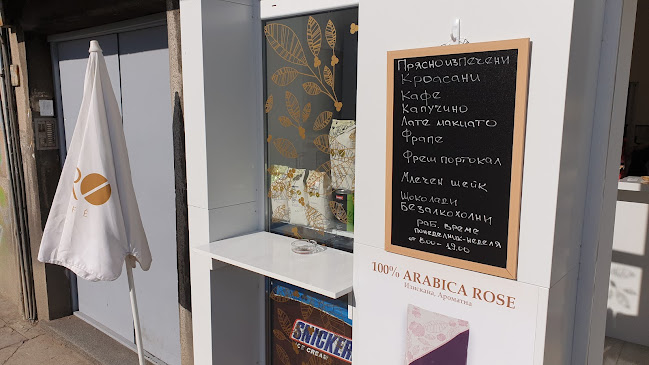 Прясноизпечени
Кроасани
Кафе
Капучино
Лате макиато
Фрапе
Фреш портокал
Млечен шейк
Шоколади
Безалкохолни
раб. време
понеделник-неделя
от 8.00 - 19.00
100% ARABICA ROSE
Изискана, Ароматна
SNICKERS
ICE CREAM